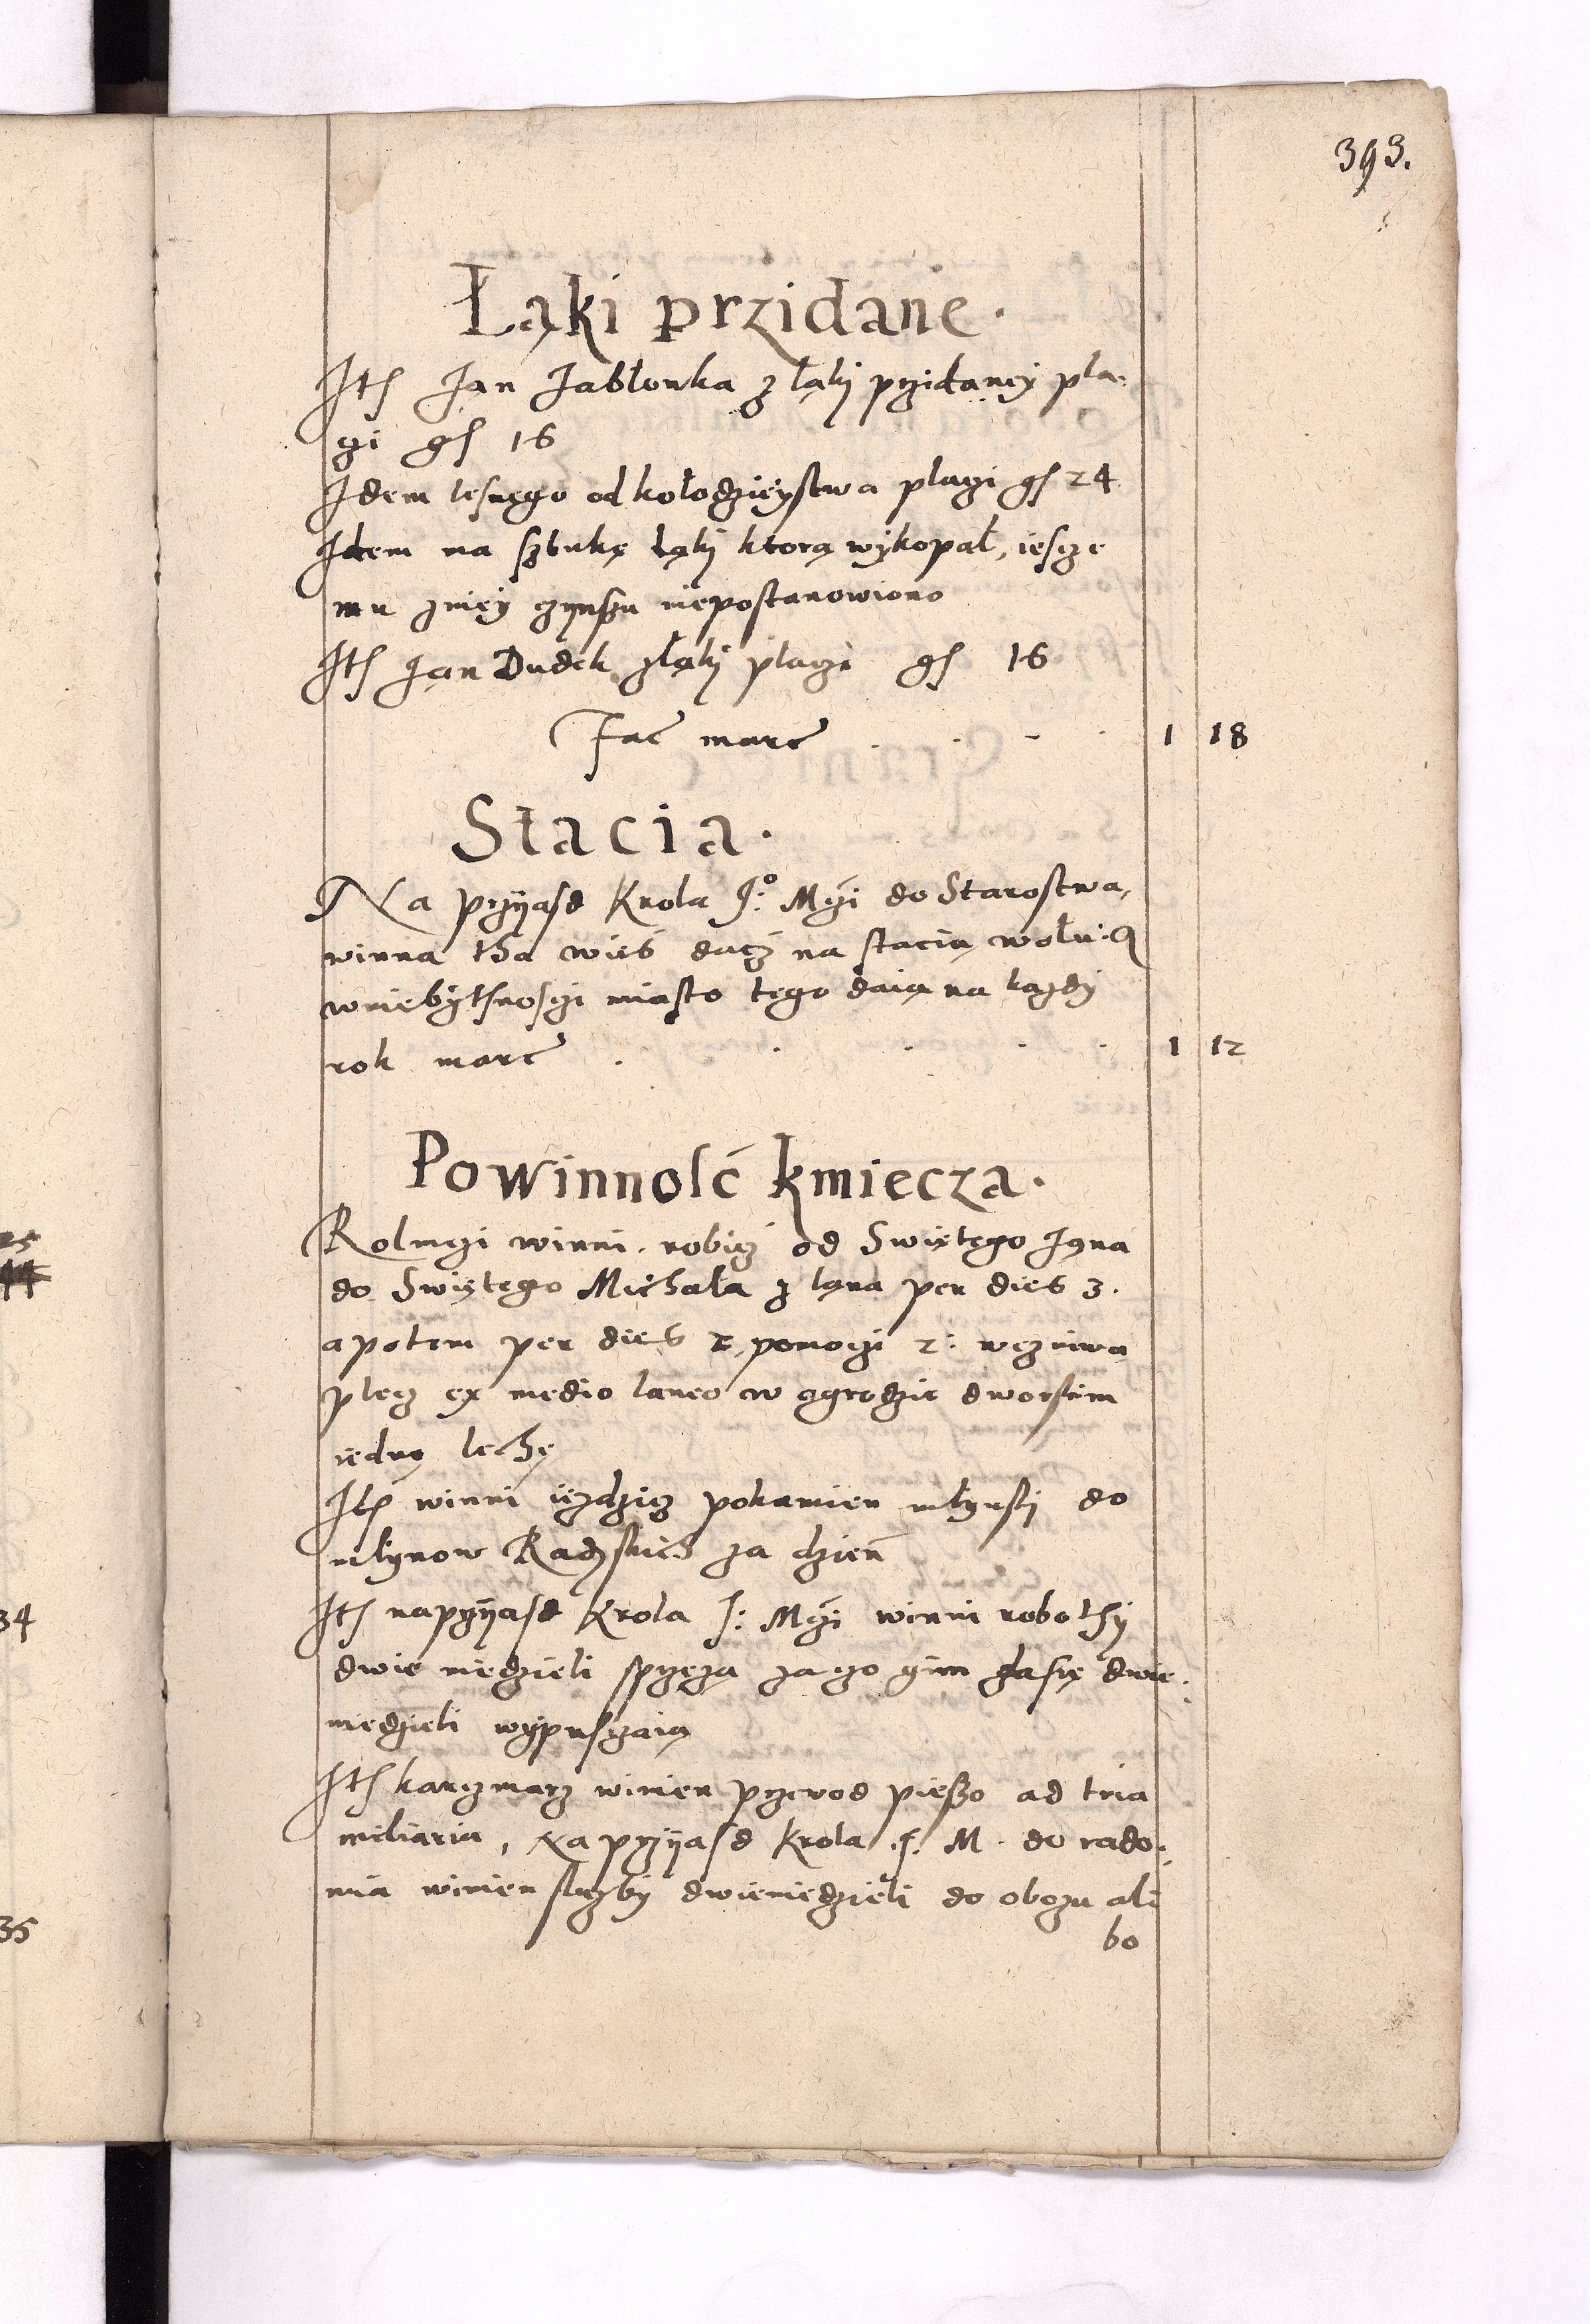 393.
Łąki przidane.
Ite͂ Jan Jabłonka z łąki przidaney pla-
czi gr 16
Idem lesnego od kołodzieystwa placzi gr 24
Idem na sztukę łąki ktorą wykopał, iescze
mu z niey czynszu niepostanowiono
Ite͂ Jan Dudek z łąki placzi gr 16
Fac marc . . - . 1 18
Stacia.
Na przyiasd Krola J:º Mczi do Starostwa,
winna tha wieś dacz na stacią wołu: q
w niebythnosczi miasto tego daią na kazdy
rok marc . . . . . 1 12
Powinnosć kmiecza.
Rolniczi winni robicz od Swiętego Jana
do Swiętego Michała z łana per dies 3.
a potem per dies 2, pomoczi 2: we zniwa
plecz ex medio laneo w ogrodzie dworskim
iednę lechę
Ite͂ winni iezdzicz po kamien młynski do
młynow Radzskich za dzień
Ite͂ na przyiasd Krola J: Mczi winni robothy
dwie niedzieli sprzęzą za czo gim zasię dwie
niedzieli wypusczaią
Ite͂ karczmarz winien przewod pieszo ad tria
miliaria, Na przyiasd Krola J. M. do rado-
mia winien słuzby dwie niedzieli do obozu al-
bo
25
44
34
35